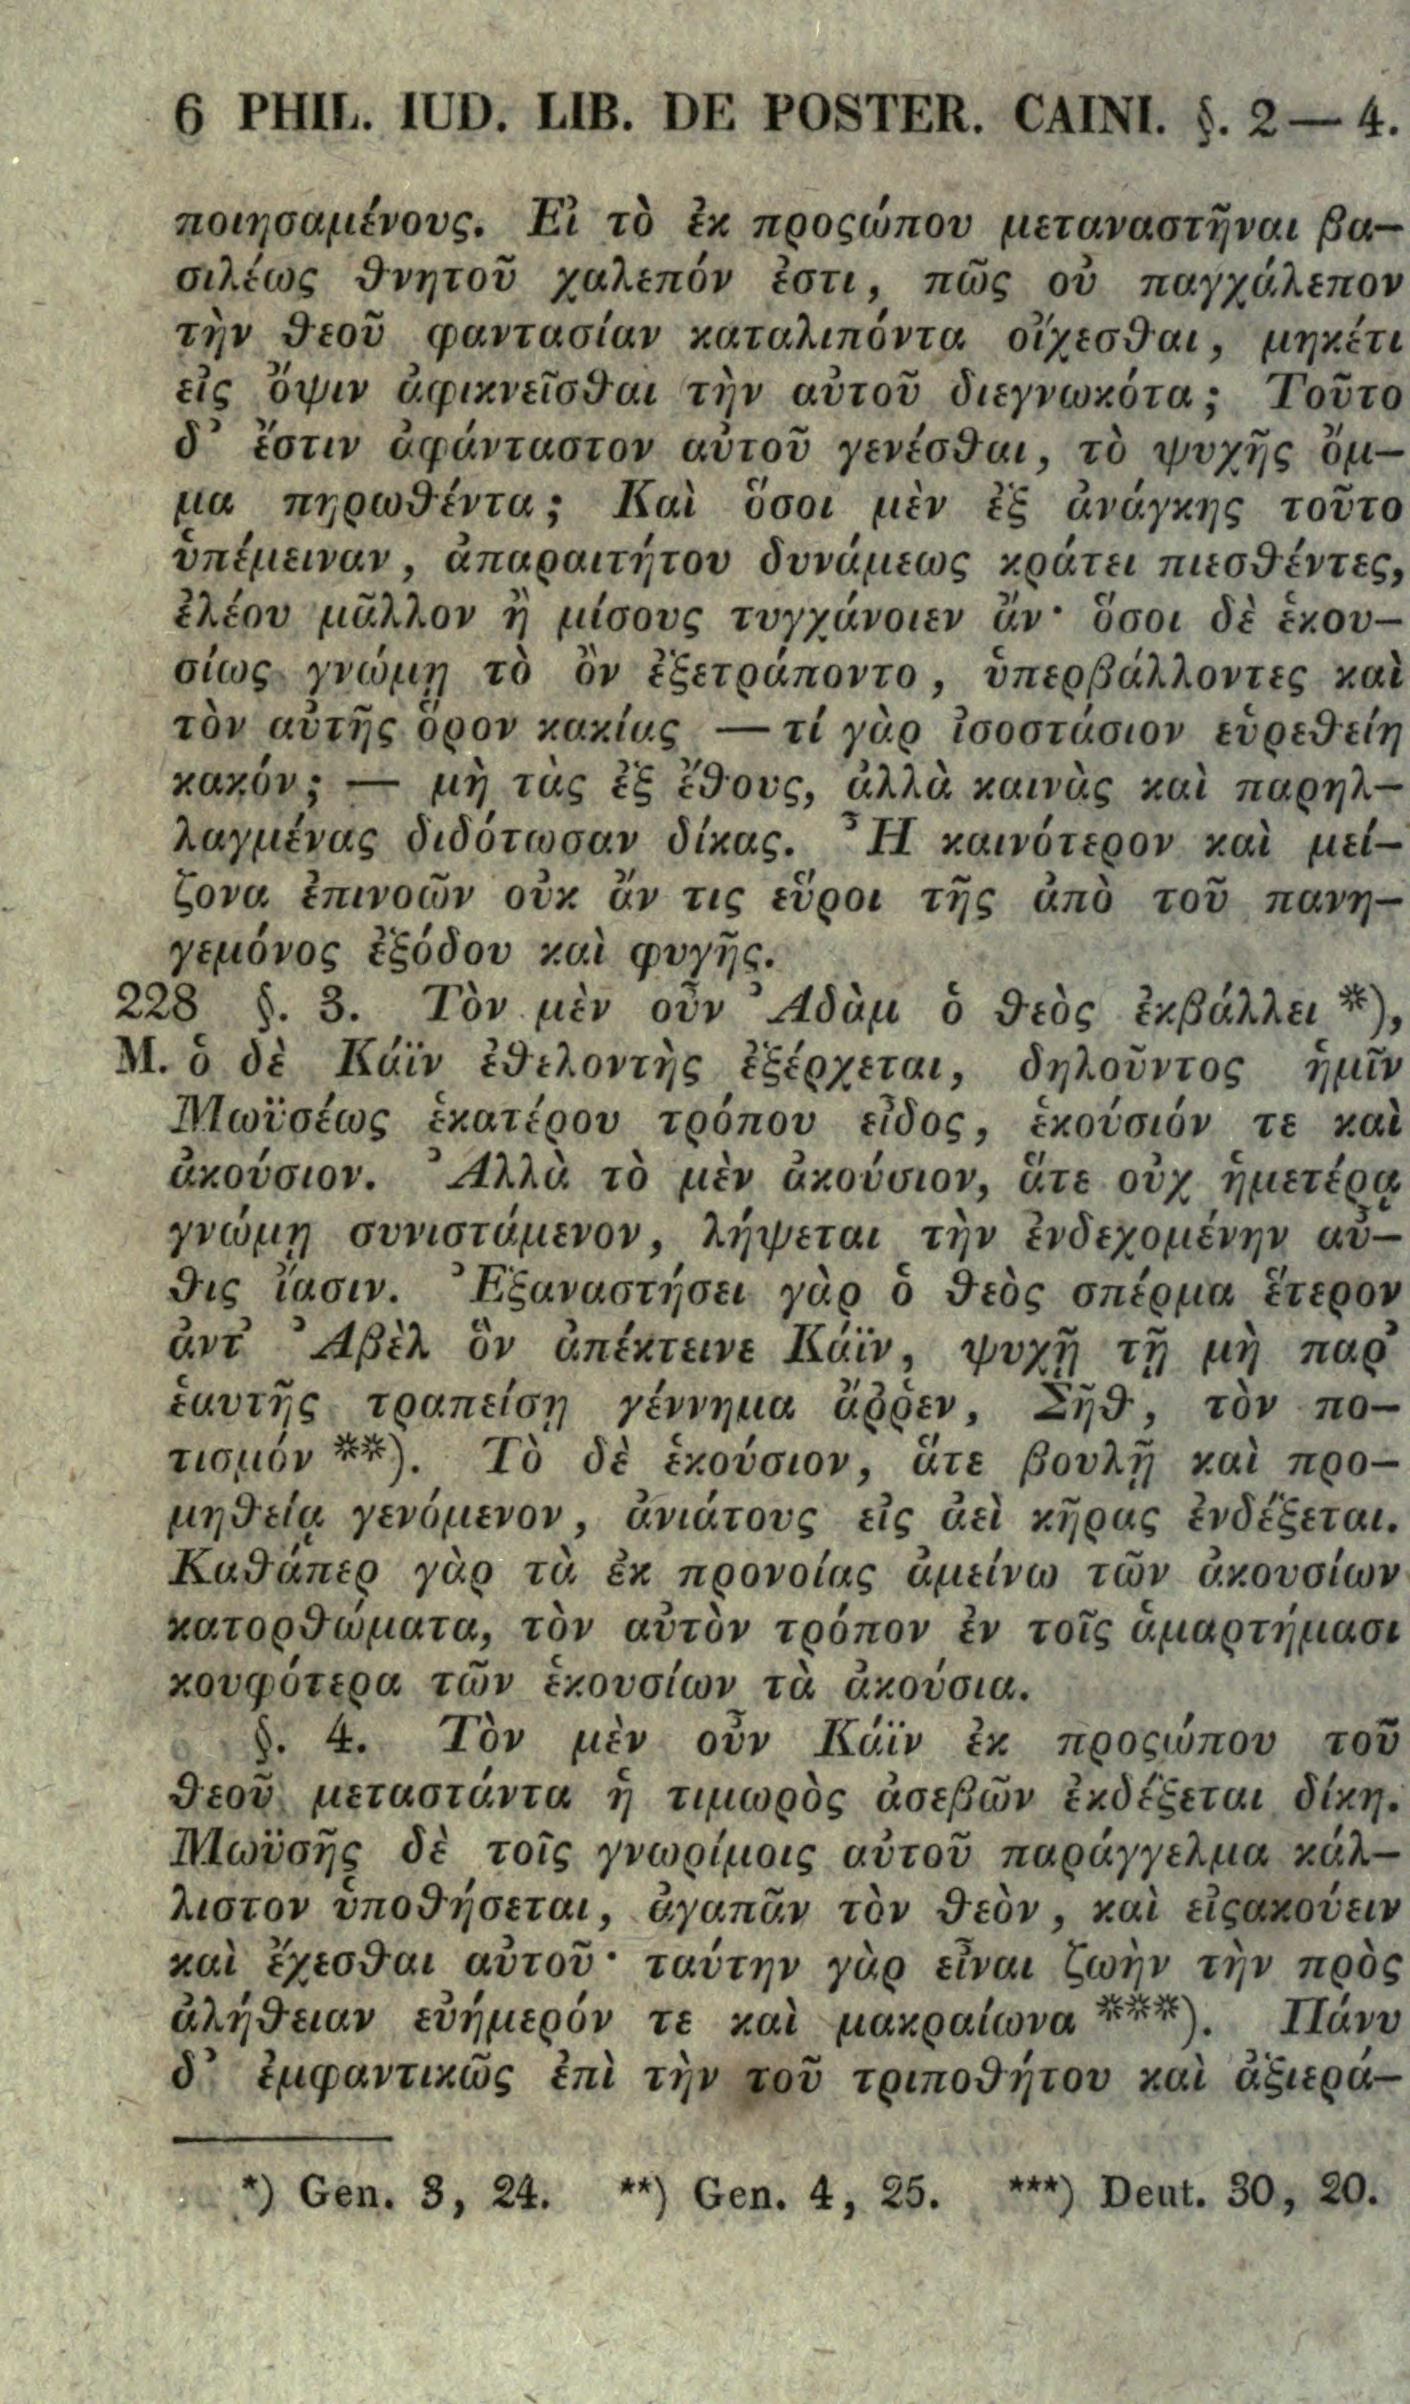 6 PHIL. IUD. LIB. DE POSTER. CAINI. §. 2 — 4.
ποιησαμένους. Εἰ τὸ ἐκ προςώπου μεταναστῆναι βα-
σιλέως θνητοῦ χαλεπόν ἐστι, πῶς οὐ παγχάλεπον
τὴν θεοῦ φαντασίαν καταλιπόντα οἴχεσθαι, μηκέτι
εἰς ὄψιν ἀφικνεῖσθαι τὴν αὐτοῦ διεγνωκότα; Τοῦτο
δ᾽ ἔστιν ἀφάνταστον αὐτοῦ γενέσθαι, τὸ ψυχῆς ὄμ-
μα πηρωθέντα; Καὶ ὅσοι μὲν ἐξ ἀνάγκης τοῦτο
ὑπέμειναν, ἀπαραιτήτου δυνάμεως κράτει πιεσθέντες,
ἐλέου μᾶλλον ἢ μίσους τυγχάνοιεν ἄν· ὅσοι δὲ ἑκου-
σίως γνώμῃ τὸ ὂν ἐξετράποντο, ὑπερβάλλοντες καὶ
τὸν αὐτῆς ὅρον κακίας — τί γὰρ ἰσοστάσιον εὑρεθείη
κακόν; — μὴ τὰς ἐξ ἔθους, ἀλλὰ καινὰς καὶ παρηλ-
λαγμένας διδότωσαν δίκας. Ἦ καινότερον καὶ μεί-
ζονα ἐπινοῶν οὐκ ἄν τις εὕροι τῆς ἀπὸ τοῦ πανη-
γεμόνος ἐξόδου καὶ φυγῆς.
228 §. 3. Τὸν μὲν οὖν Ἀδὰμ ὁ θεὸς ἐκβάλλει *),
M. ὁ δὲ Κάϊν ἐθελοντὴς ἐξέρχεται, δηλοῦντος ἡμῖν
Μωϋσέως ἑκατέρου τρόπου εἶδος, ἑκούσιόν τε καὶ
ἀκούσιον. Ἀλλὰ τὸ μὲν ἀκούσιον, ἅτε οὐχ ἡμετέρᾳ
γνώμῃ συνιστάμενον, λήψεται τὴν ἐνδεχομένην αὖ-
θις ἴασιν. Ἐξαναστήσει γὰρ ὁ θεὸς σπέρμα ἕτερον
ἀντ᾽ Ἀβὲλ ὃν ἀπέκτεινε Κάϊν, ψυχῇ τῇ μὴ παρ᾽
ἑαυτῆς τραπείσῃ γέννημα ἄῤῥεν, Σῆθ, τὸν πο-
τισμόν **). Τὸ δὲ ἑκούσιον, ἅτε βουλῇ καὶ προ-
μηθείᾳ γενόμενον, ἀνιάτους εἰς ἀεὶ κῆρας ἐνδέξεται.
Καθάπερ γὰρ τὰ ἐκ προνοίας ἀμείνω τῶν ἀκουσίων
κατορθώματα, τὸν αὐτὸν τρόπον ἐν τοῖς ἁμαρτήμασι
κουφότερα τῶν ἑκουσίων τὰ ἀκούσια.
§. 4. Τὸν μὲν οὖν Κάϊν ἐκ προςώπου τοῦ
θεοῦ μεταστάντα ἡ τιμωρὸς ἀσεβῶν ἐκδέξεται δίκη.
Μωϋσῆς δὲ τοῖς γνωρίμοις αὐτοῦ παράγγελμα κάλ-
λιστον ὑποθήσεται, ἀγαπᾶν τὸν θεὸν, καὶ εἰςακούειν
καὶ ἔχεσθαι αὐτοῦ· ταύτην γὰρ εἶναι ζωὴν τὴν πρὸς
ἀλήθειαν εὐήμερόν τε καὶ μακραίωνα ***). Πάνυ
δ᾽ ἐμφαντικῶς ἐπὶ τὴν τοῦ τριποθήτου καὶ ἀξιερά-
*) Gen. 3, 24. **) Gen. 4, 25. ***) Deut. 30, 20.